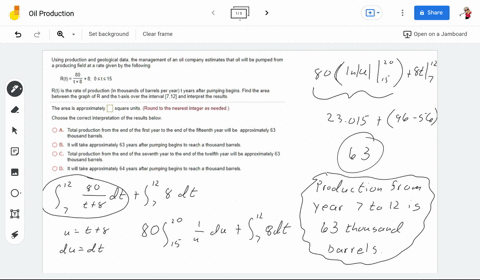 Oil Production
1 / 1
Share
Set background
Clear frame
Open on a Jamboard
Using production and geological data, the management of an oil company estimates that oil will be pumped from
a producing field at a rate given by the following.
R(t) = 80/(t + 8) + 8; 0 ≤ t ≤ 15
R(t) is the rate of production (in thousands of barrels per year) t years after pumping begins. Find the area
between the graph of R and the t-axis over the interval [7,12] and interpret the results.
The area is approximately square units. (Round to the nearest integer as needed.)
Choose the correct interpretation of the results below.
A. Total production from the end of the first year to the end of the fifteenth year will be approximately 63
thousand barrels.
B. It will take approximately 63 years after pumping begins to reach a thousand barrels.
C. Total production from the end of the seventh year to the end of the twelfth year will be approximately 63
thousand barrels.
D. It will take approximately 64 years after pumping begins to reach a thousand barrels.
80 (ln|u| |₁₅²⁰ + 8t|₇¹²
23.015 + (96-56)
63
∫₇¹² 80/(t+8) dt + ∫₇¹² 8 dt
u = t+8
du = dt
80 ∫₁₅²⁰ 1/u du + ∫₇¹² 8dt
Production from
year 7 to 12 is
63 thousand
barrels